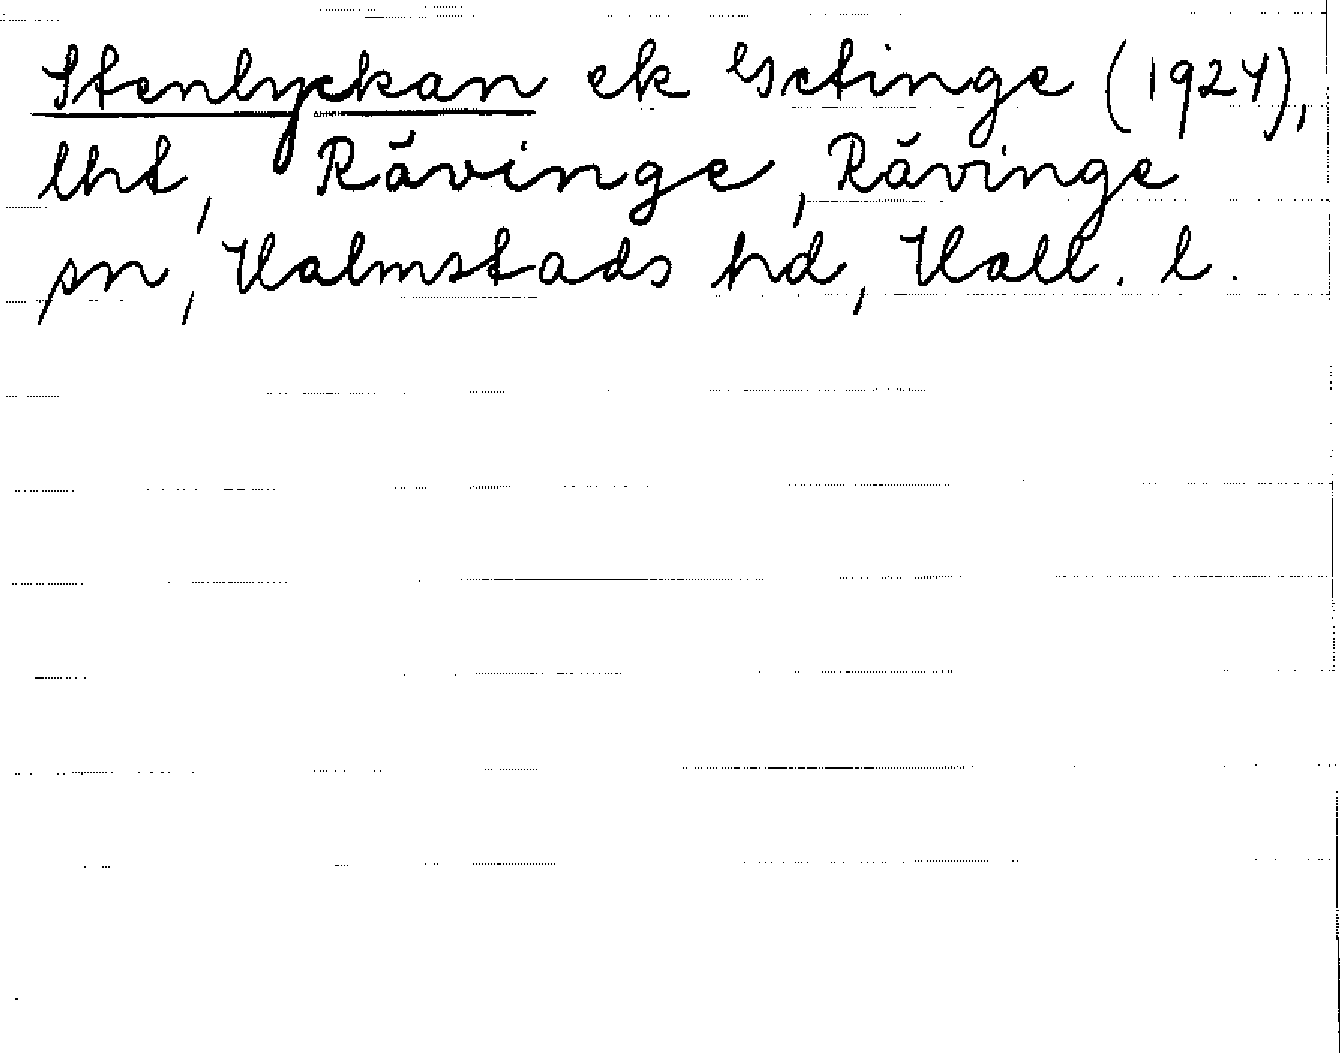 Stenlyckan ek Getinge (1924),
lht, Rävinge, Rävinge
sn, Halmstads hd, Hall. l.